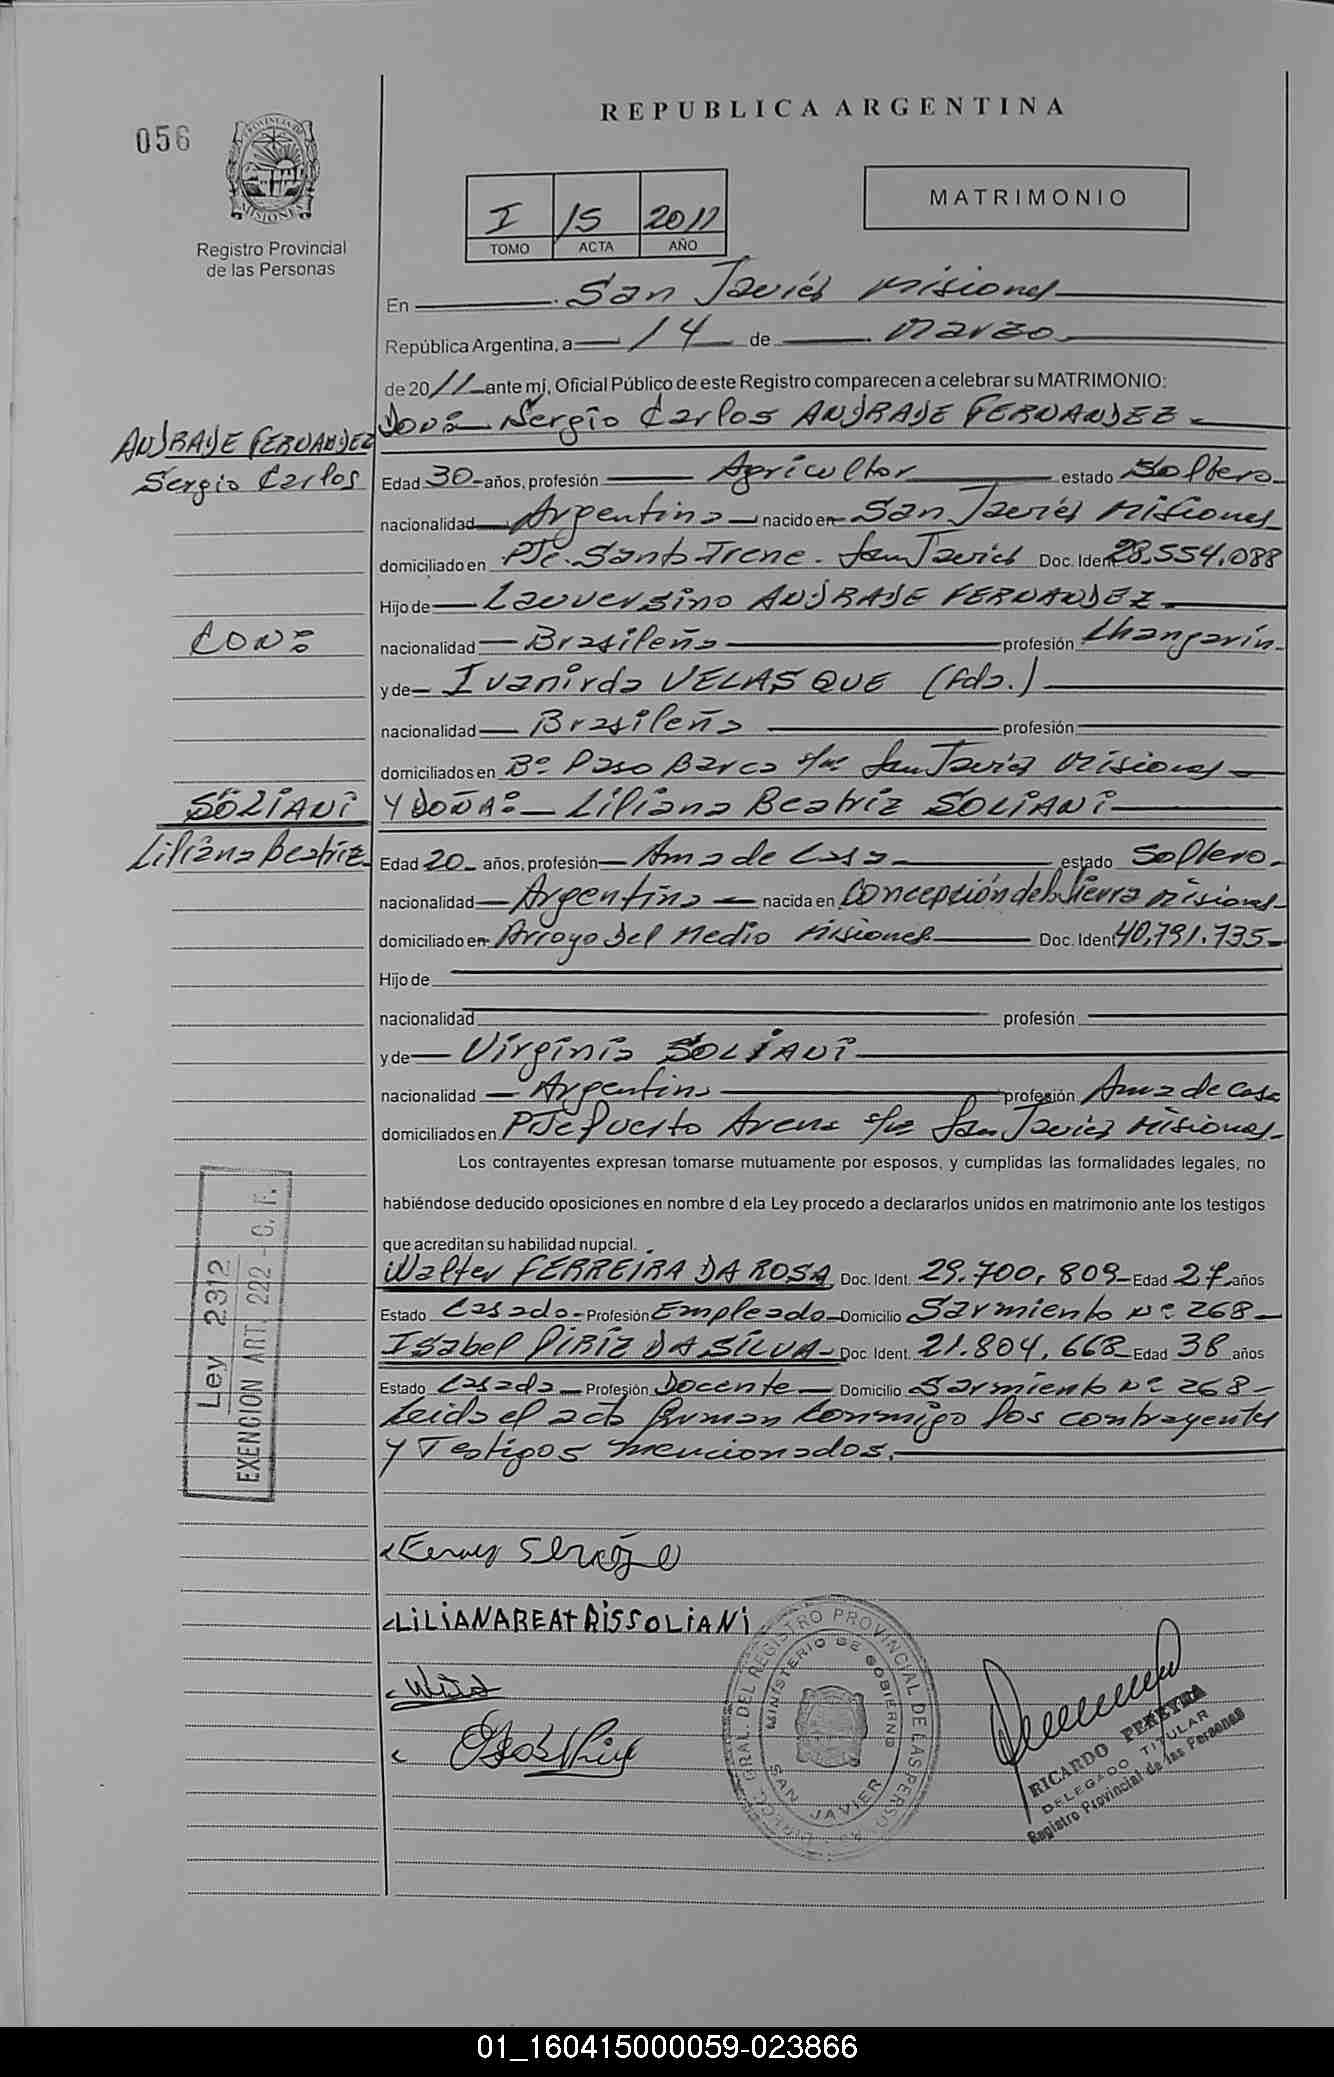 056
PROVINCIA DE MISIONES
Registro Provincial
de las Personas
REPUBLICA ARGENTINA
I 15 2011
TOMO ACTA AÑO
MATRIMONIO
En San Javier Misiones
República Argentina, a 14 de Marzo
de 2011 ante mí, Oficial Público de este Registro comparecen a celebrar su MATRIMONIO:
ANDRADE FERNANDEZ
Sergio Carlos
DON: Sergio Carlos ANDRADE FERNANDEZ
Edad 30 años, profesión Agricultor estado Soltero
nacionalidad Argentina nacido en San Javier Misiones
domiciliado en Pje. Santa Irene. San Javier Doc. Ident 28.554.088
Hijo de Lauversino ANDRADE FERNANDEZ
CON:
nacionalidad Brasileña profesión Changarín
y de Ivanirda VELASQUE (fda.)
nacionalidad Brasileña profesión
domiciliados en Bº Paso Barca s/nº San Javier Misiones
SOLIANI
Liliana Beatriz
Y DOÑA: Liliana Beatriz SOLIANI
Edad 20 años, profesión Ama de Casa estado Soltero
nacionalidad Argentina nacida en Concepción de la Sierra Misiones
domiciliado en Arroyo Del Medio Misiones Doc. Ident 40.791.735
Hijo de
nacionalidad profesión
y de Virginia SOLIANI
nacionalidad Argentina profesión Ama de Casa
domiciliados en Pje Puerto Arena s/nº San Javier Misiones
Los contrayentes expresan tomarse mutuamente por esposos, y cumplidas las formalidades legales, no
habiéndose deducido oposiciones en nombre d ela Ley procedo a declararlos unidos en matrimonio ante los testigos
que acreditan su habilidad nupcial.
Walter FERREIRA DA ROSA Doc. Ident. 29.700.809 Edad 27 años
Estado Casado Profesión Empleado Domicilio Sarmiento Nº 268
Isabel PIRIZ DA SILVA Doc. Ident. 21.804.668 Edad 38 años
Estado Casada Profesión Docente Domicilio Sarmiento Nº 268
Leida el acta firman conmigo los contrayentes
y Testigos mencionados.
Ley 2312
EXENCION ART. 222 - C. F.
LILIANABEATRISSOLIANI
DIRECC. GRAL. DEL REGISTRO PROVINCIAL DE LAS PERSONAS
MINISTERIO DE GOBIERNO
SAN JAVIER
RICARDO PEREYRA
DELEGADO TITULAR
Registro Provincial de las Personas
01_160415000059-023866